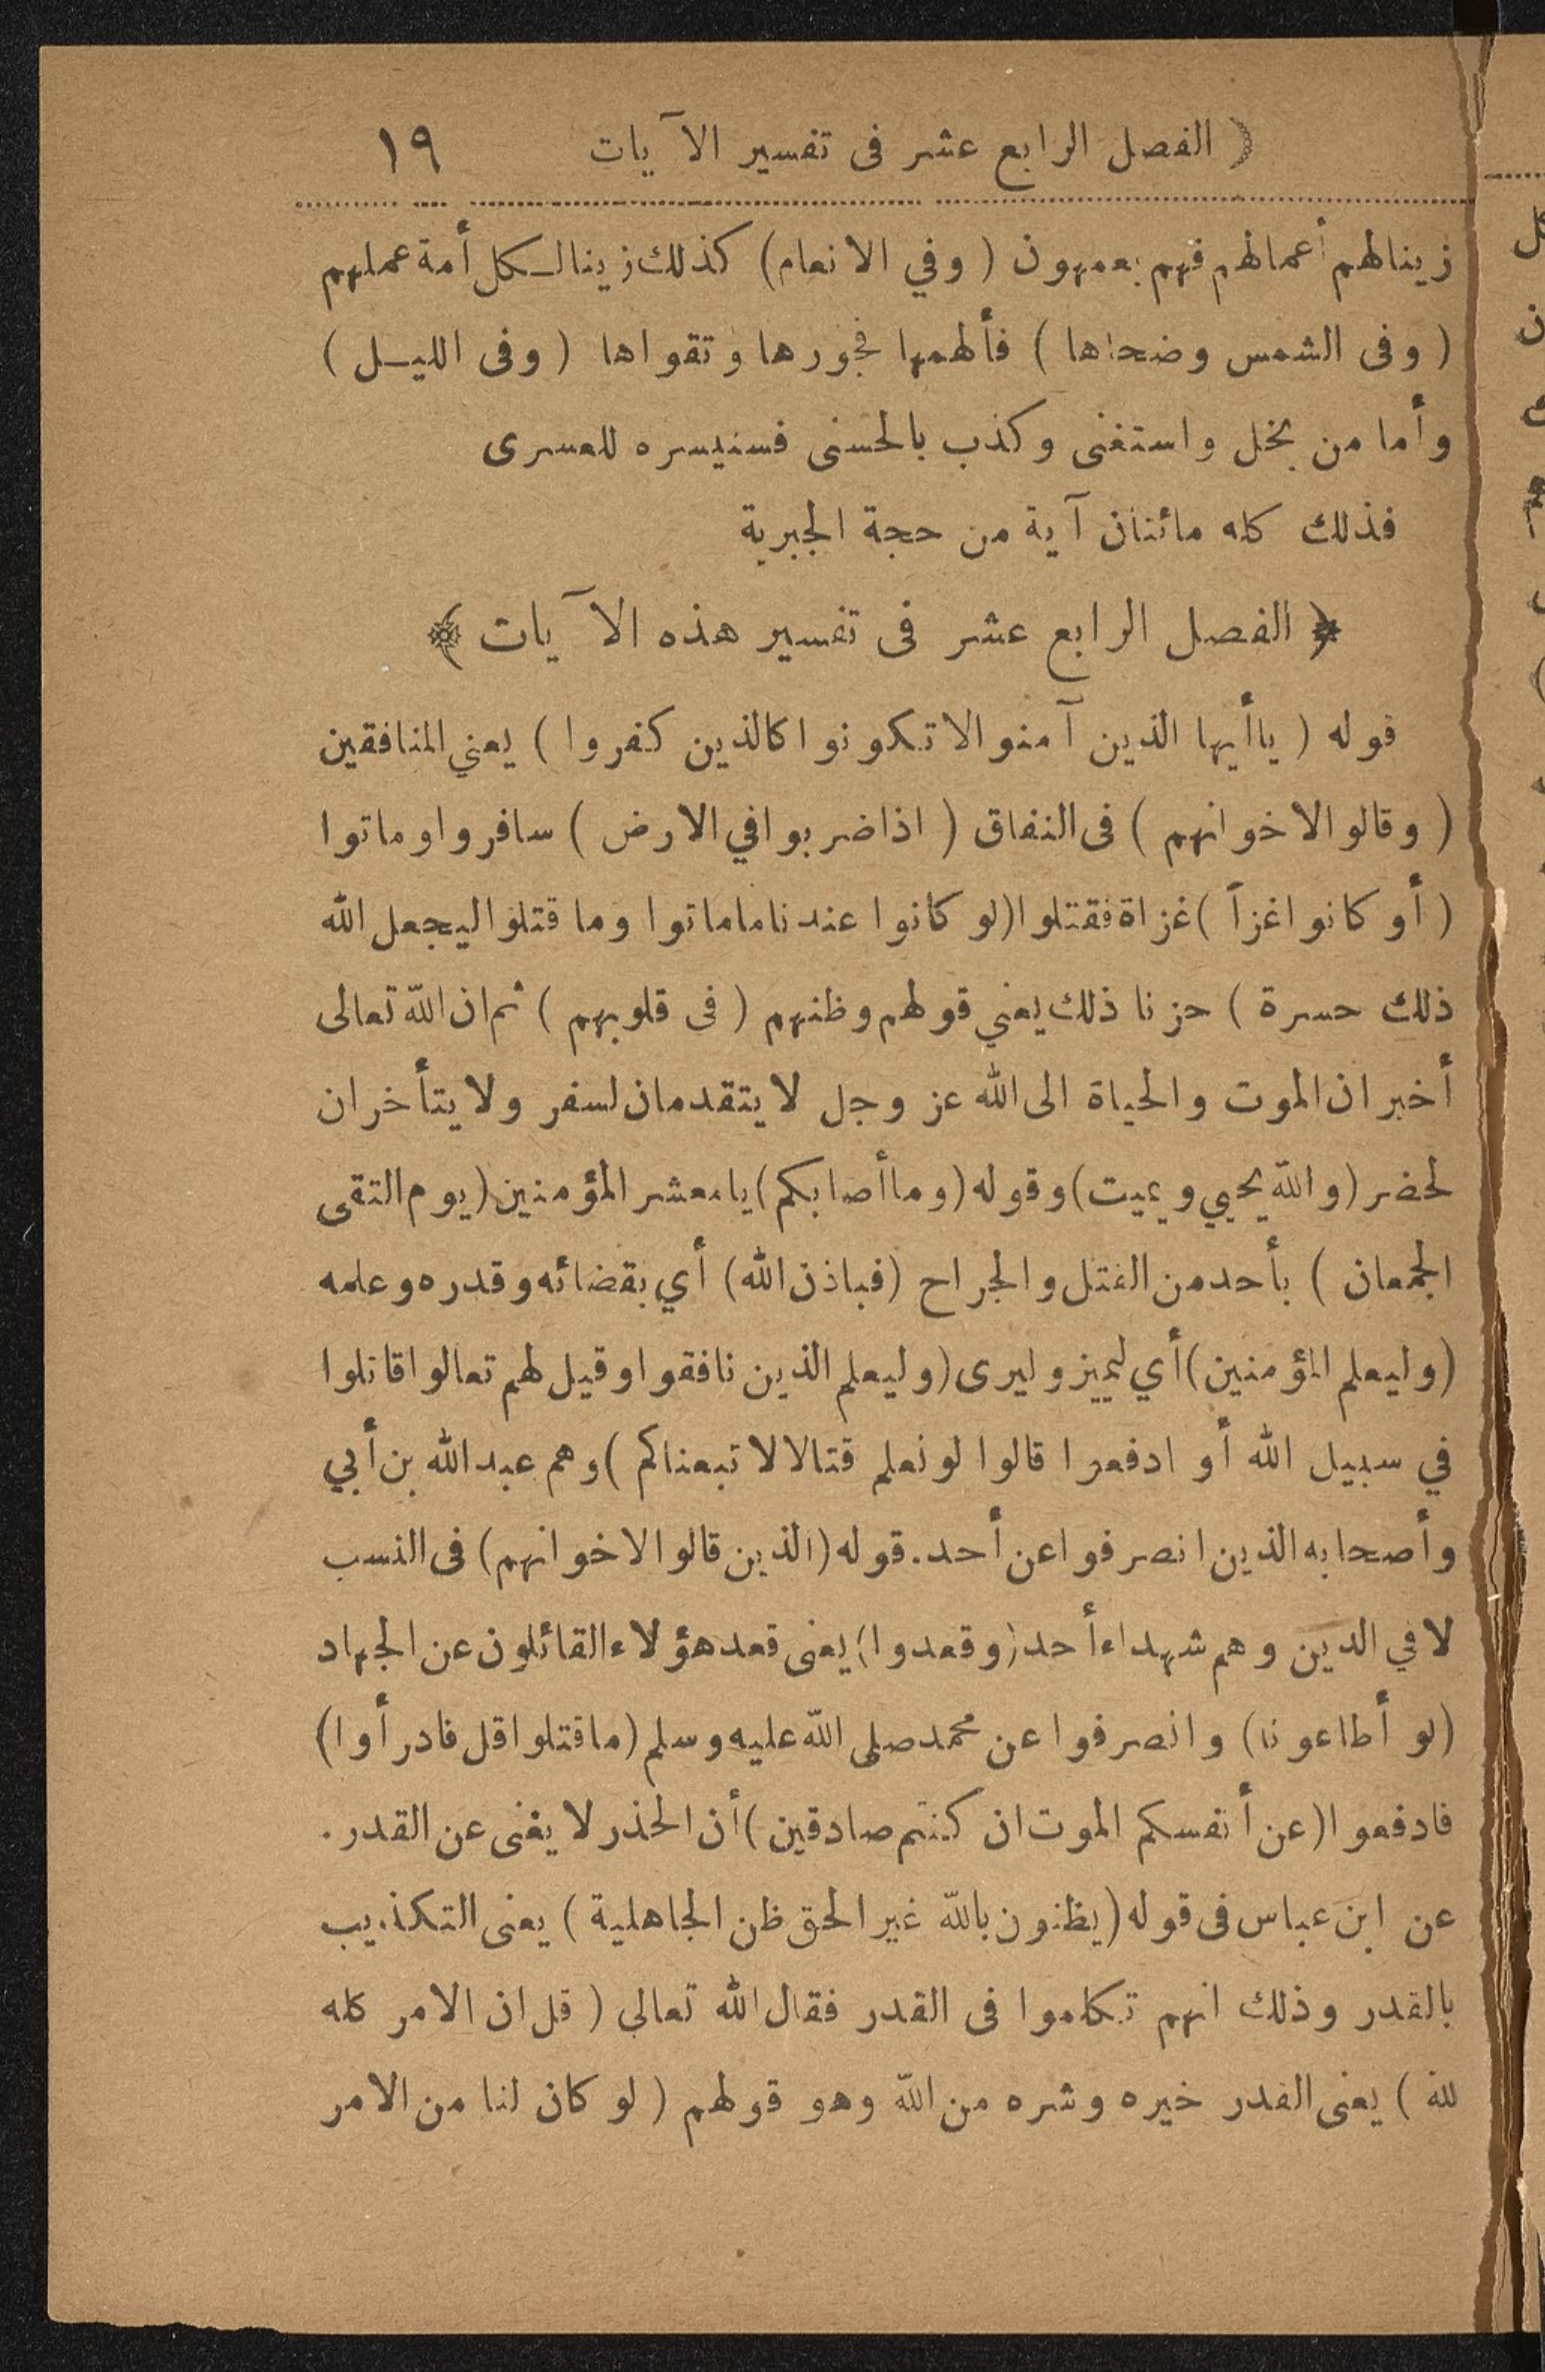 ( الفصل الرابع عشر فى تفسير الآيات ١٩
زينالهم أعمالهم فهم يعمهون ( وفي الانعام) كذلك زينالكل أمة عملهم
( وفى الشمس وضحاها ) فألهمها فجورها وتقواها ( وفى الليـل )
وأما من بخل واستغنى وكذب بالحسنى فسنيسره للعسرى
فذلك كله مائتان آية من حجة الجبرية
﴿ الفصل الرابع عشر فى تفسير هذه الآيات ﴾
قوله ( ياأيها الذين آمنوا لا تكونوا كالذين كفروا ) يعني المنافقين
( وقالوا لاخوانهم ) فى النفاق ( اذا ضربوا في الارض ) سافروا وماتوا
( أو كانوا غزاً ) غزاة فقتلوا (لو كانوا عندنا ماماتوا وما قتلوا ليجعل الله
ذلك حسرة ) حزنا ذلك يعني قولهم وظنهم ( فى قلوبهم ) ثم ان الله تعالى
أخبر ان الموت والحياة الى الله عز وجل لا يتقدمان لسفر ولا يتأخران
لحضر (والله يحيي ويميت) وقوله (وما أصابكم) يا معشر المؤمنين (يوم التقى
الجمعان ) بأحد من القتل والجراح (فباذن الله) أي بقضائه وقدره وعلمه
(وليعلم المؤمنين) أي ليميز وليرى (وليعلم الذين نافقوا وقيل لهم تعالوا قاتلوا
في سبيل الله أو ادفعوا قالوا لو نعلم قتالا لاتبعناكم ) وهم عبد الله بن أبي
وأصحابه الذين انصرفوا عن أحد. قوله (الذين قالوا لاخوانهم) فى النسب
لا في الدين وهم شهداء أحد (وقعدوا) يعنى قعد هؤلاء القائلون عن الجهاد
(لو أطاعونا) وانصرفوا عن محمد صلى الله عليه وسلم (ما قتلوا قل فادرأوا)
فادفعوا (عن أنفسكم الموت ان كنتم صادقين) أن الحذر لا يغنى عن القدر.
عن ابن عباس فى قوله (يظنون بالله غير الحق ظن الجاهلية ) يعنى التكذيب
بالقدر وذلك انهم تكلموا فى القدر فقال الله تعالى ( قل ان الامر كله
لله ) يعنى القدر خيره وشره من الله وهو قولهم ( لو كان لنا من الامر